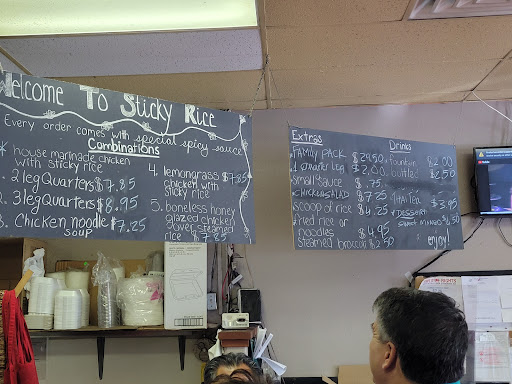 Welcome To Sticky Rice
Every order comes with special spicy sauce
Combinations
* house marinade chicken
with sticky rice
2 leg Quarters $7.85
3 leg Quarters $8.95
3. Chicken noodle $7.25
soup
4. lemongrass $7.85
chicken with
sticky rice
5. boneless honey
glazed chicken
over steamed
rice $7.85
Extras
Family Pack $29.50
1 quarter leg $2.00
small sauce $.75
chicken salad $7.25
scoop of rice $4.25
fried rice or
noodles $4.95
steamed broccoli $2.50
Drinks
fountain $2.00
bottled $2.50
thai tea $3.95
dessert
sweet mango $6.50
enjoy!